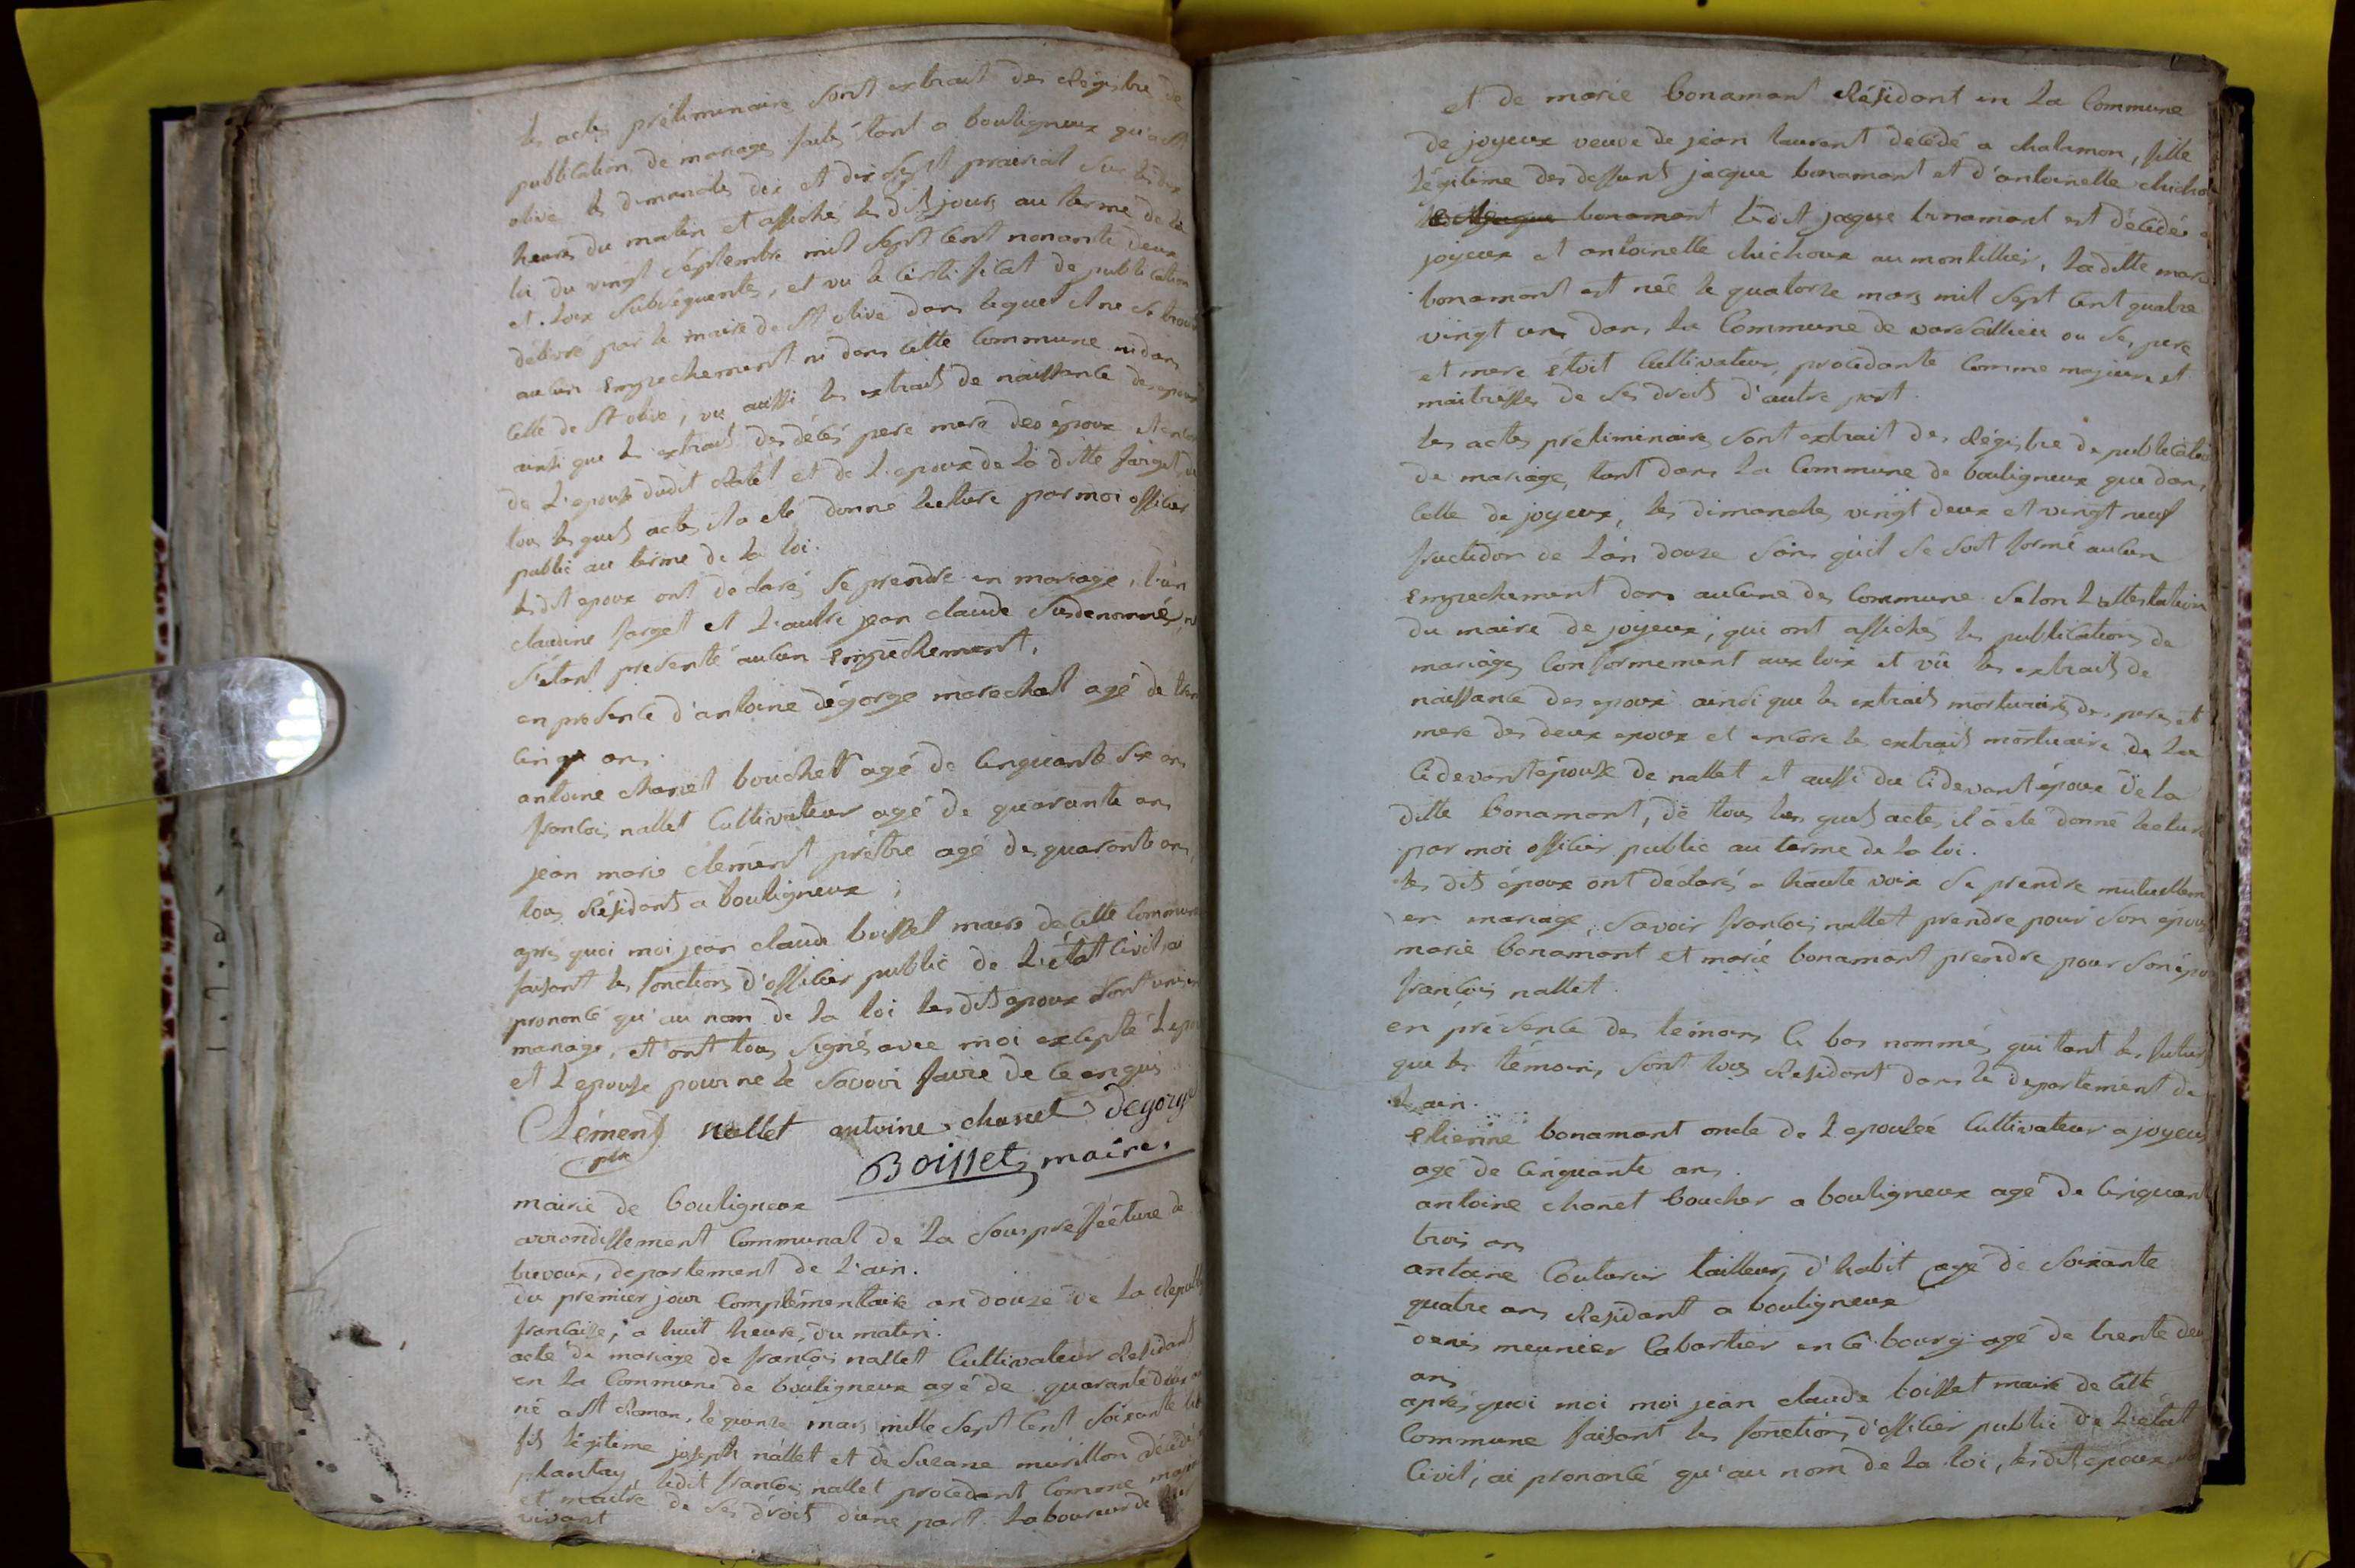 les actes préliminaire sont extrait des Régistre de
publication de mariage faite tant a bouligneux qu'a St
olive les dimanches dix et dix sept prairial sur les dix
heures du matin et affiché les dits jours au terme de la
loi du vingt septembre mil sept cent nonante deux
et loix subséquentes, et vu le certificat de publication
délivré par le maire de St olive dans lequel il ne se trouve
aucun empechement ni dans cette commune ni dans
celle de St olive, vu aussi les extraits de naissance des epoux
ainsi que les extraits des décés pere mere des époux et encor
de l'epouse dudit et de l'epoux de la ditte farget, de
tous les quels actes il a eté donné lecture par moi officier
public au terme de la loi.
les dit epoux ont declarés se prendre en mariage, l'un
claudine farget et l'autre jean claude susdenommé, ne
s'étant presenté aucun empechement,
en presence d'antoine dégorge marechal agé de
cinq ans.
antoine charvet boucher agé de cinquante six ans
francois nallet cultivateur agé de quarante ans
jean marie clément prêtre agé de quarante ans,
tous résidants a bouligneux ;
après quoi moi jean claude boisset maire de cette commune
faisant les fonctions d'officier public de l'état civil, ai
prononcé qu'au nom de la loi les dits epoux sont unis en
mariage, et ont tous signés avec moi excepté l'epoux
et l'epouse pour ne le savoir faire de ce enquis
Clément nallet antoine charvet Degorge
ptre
Boisset, maire.
mairie de bouligneux
arrondissement communal de la souspreffécture de
trevoux, departement de l'ain.
du premier jour complémentaire an douze de la Republ
francaise, a huit heures du matin.
acte de mariage de francois nallet cultivateur Residant
en la commune de bouligneux agé de quarante deux ans
né a St Roman, le quinze mars mille sept cent soixante
fils légitime joseph nallet et de Suzane murillon décédés
plantay, ledit francois nallet procedant comme majeur
et maitre de ses droits d'une part. laboureur de leur
vivant
et de marie bonamant Résidant en la commune
de joyeux veuve de jean laurent décédé a chalamon, fille
légitime des deffunts jacque bonamant et d'antoinette chichou
ledit jacque bonamant ledit jaque bonamant est décédé a
joyeux et antoinette chichoux au montellier, la ditte marie
bonamant est née le quatorze mars mil sept cent quatre
vingt un dans la commune de versallieu ou ses pere
et mere étoit cultivateur, procedante comme majeure et
maitresse de ses droits d'autre part.
les actes préliminaires sont extrait des Régistre de publication
de mariage, tant dans la commune de bouligneux que dans
celle de joyeux, les dimanches vingt deux et vingt neuf
fructidor de l'an douze sans qu'il se soit formé aucun
empechement dans aucune des commune selon l'attestation
du maire de joyeux, qui ont affichés les publications de
mariages conformement aux loix et vû les extraits de
naissance des epoux ainsi que les extraits mortuaires des peres et
mere des deux epoux et encore les extraits mortuaire de la
cidevant épouse de nallet et aussi du cidevant époux de la
ditte bonamant, de tous les quels actes il a eté donné lecture
par moi officier public au terme de la loi.
les dits époux ont déclarés a haute voix se prendre mutuellem
en mariage, savoir francois nallet prendre pour son epous
marie bonamant et marie bonamant prendre pour son épou
francois nallet.
en présence des temoins ci bas nommés, qui tant les futurs
que les témoins sont tous Residant dans le departement de
l'ain.
etienne bonamant oncle de l'epousée cultivateur a joyeux
agé de cinquante ans.
antoine charvet boucher a bouligneux agé de cinquant
trois ans
antoine couturier tailleur d'habit agé de soixante
quatre ans Residant a bouligneux
denis meunier cabartier en ce bourg agé de trente deu
ans
après quoi moi moi jean claude boisset maire de cette
commune faisant les fonctions d'officier public de l'état
civil, ai prononcé qu'au nom de la loi, les dit epoux